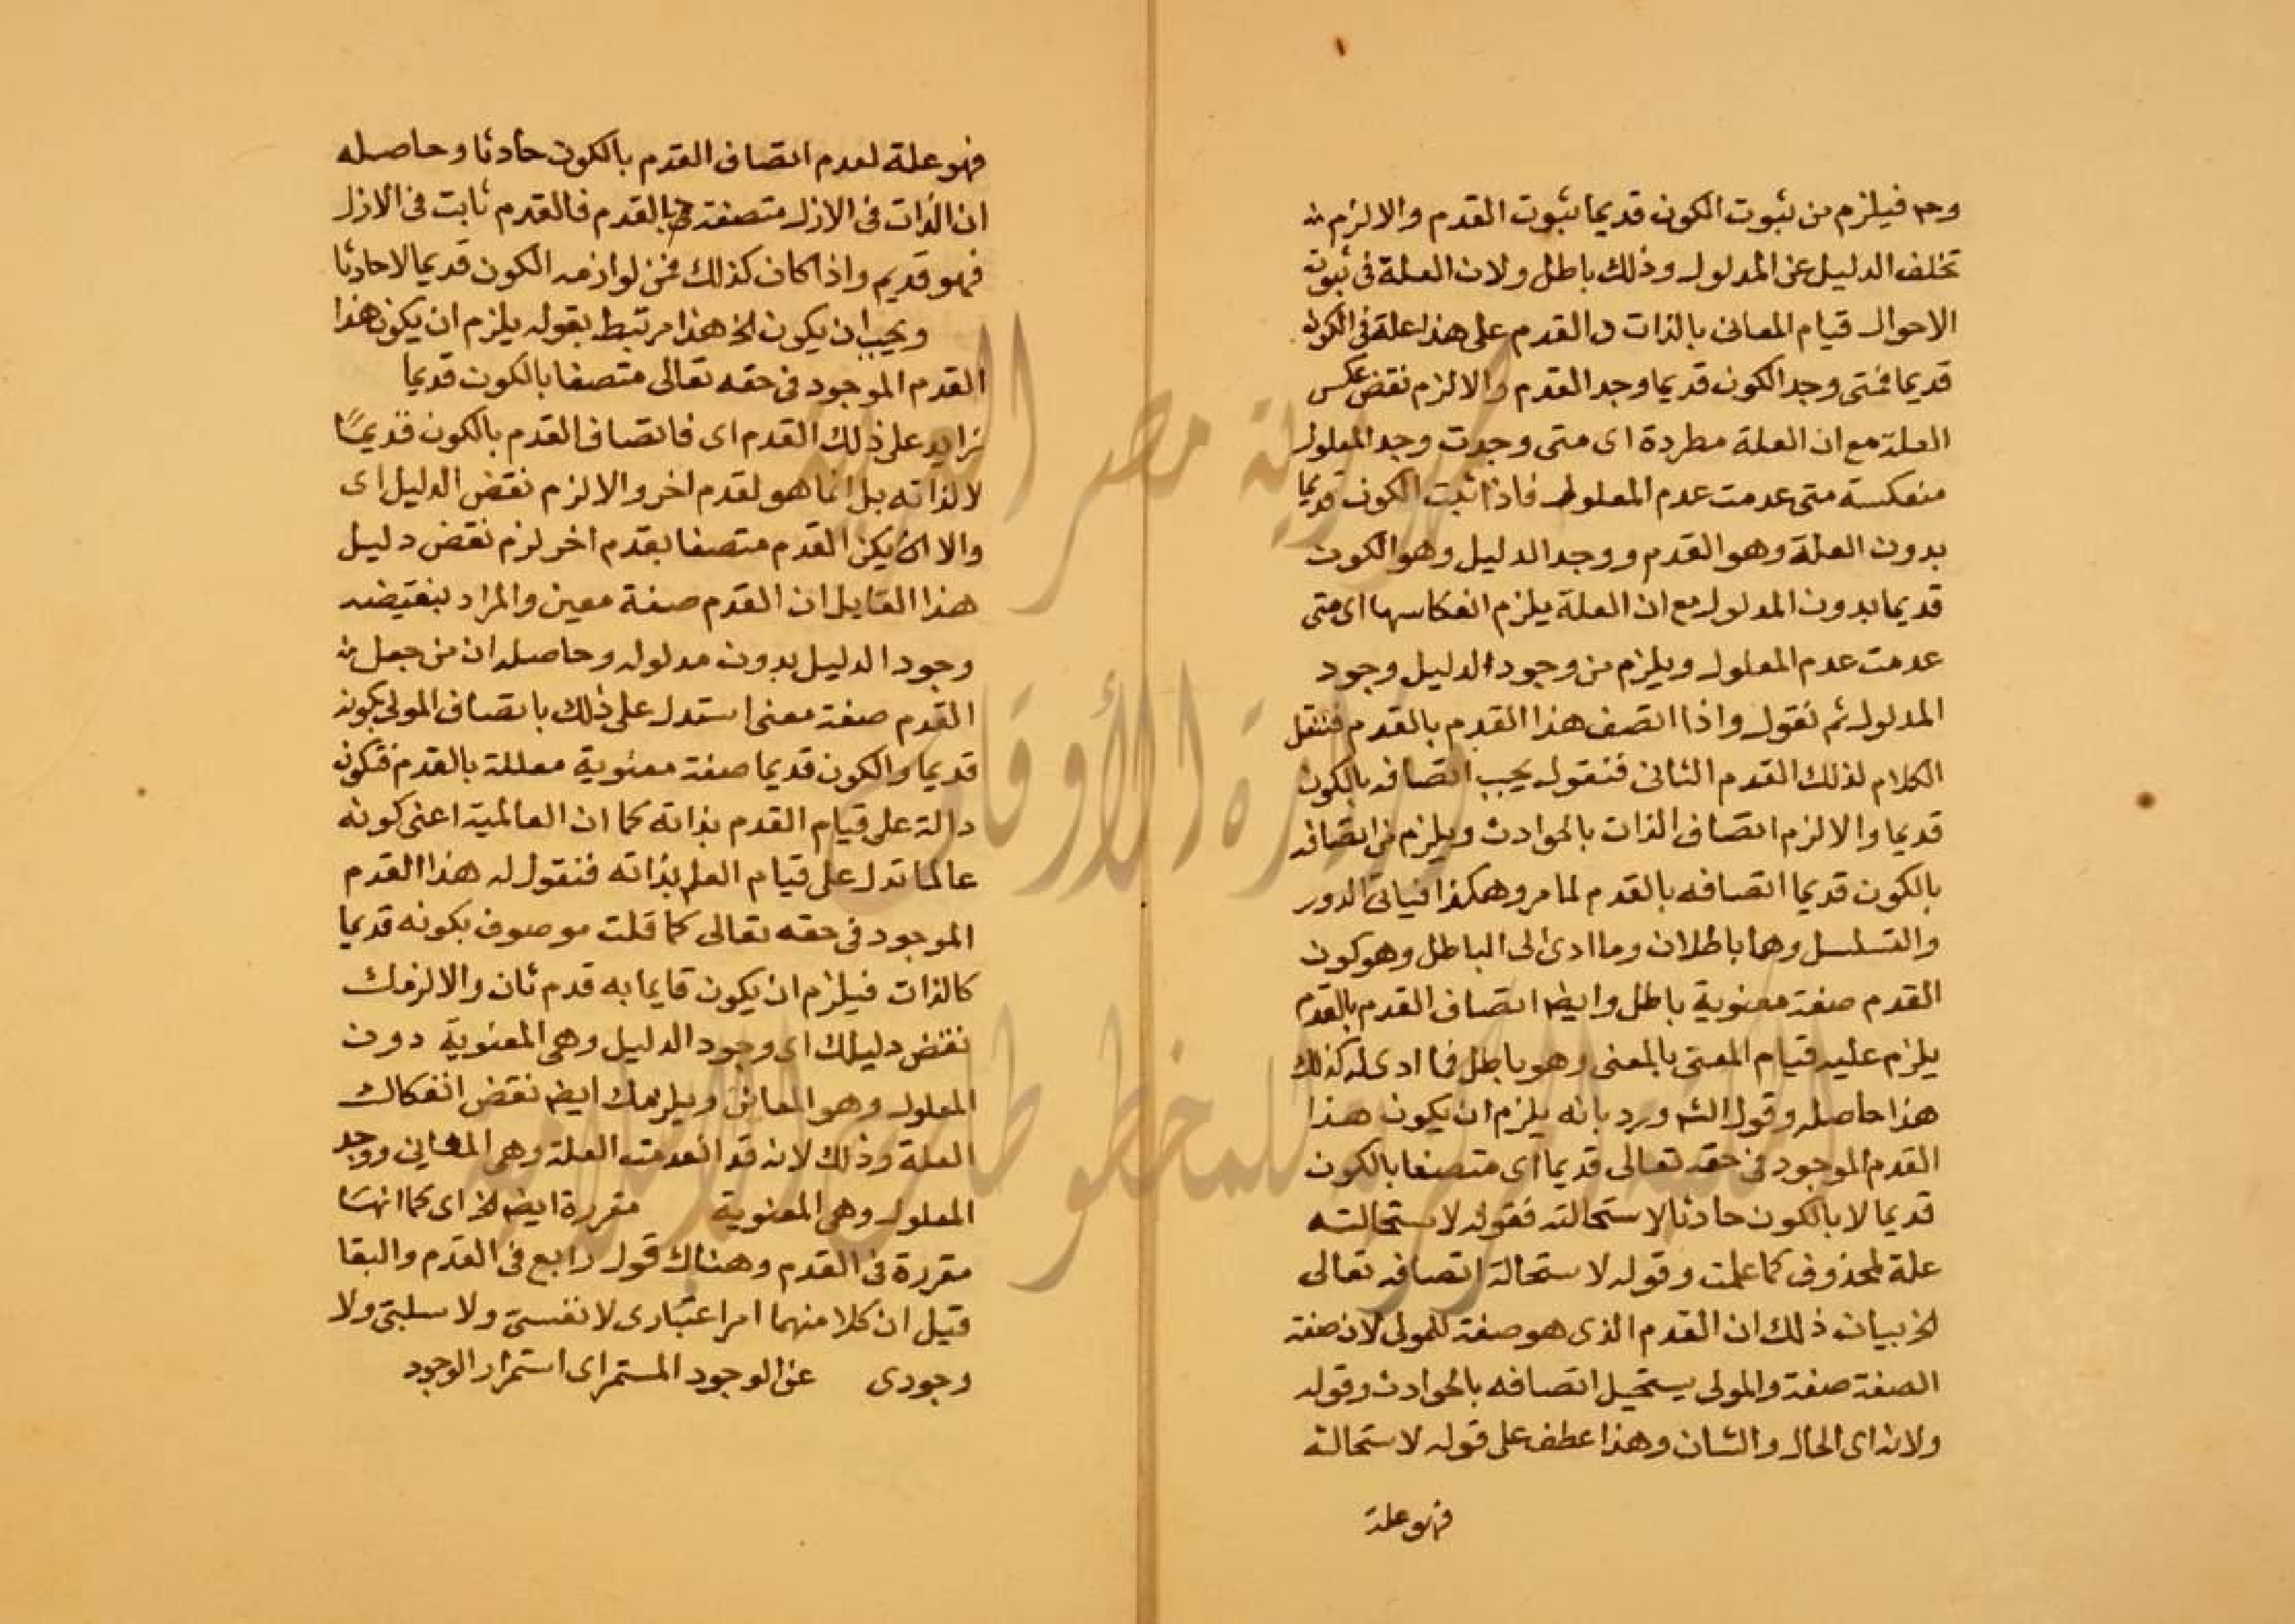 وح فيلزم من ثبوت الكون قديما ثبوت القدم والا لزم
تخلف الدليل عن المدلول وذلك باطل ولان العلة فى ثبوت
الاحوال قيام المعانى بالذات فالقدم على هذا علة فى الكون
قديما فمتى وجد الكون قديما وجد القدم والا لزم نقض عكس
العلة مع ان العلة مطردة اى متى وجدت وجد المعلول
منعكسة متى عدمت عدم المعلول فاذا ثبت الكون قديما
بدون العلة وهو القدم ووجد الدليل وهو الكون
قديما بدون المدلول مع ان العلة يلزم انعكاسها اى متى
عدمت عدم المعلول ويلزم من وجود الدليل وجود
المدلول ثم نقول واذا اتصف هذا القدم بالقدم فننقل
الكلام لذلك القدم الثانى فنقول يجب اتصافه بالكون
قديما والا لزم اتصاف الذات بالحوادث ويلزم من اتصافه
بالكون قديما اتصافه بالقدم لما مر وهكذا فياتى الدور
والتسلسل وهما باطلان وما ادى الى الباطل وهو كون
القدم صفة معنوية باطل وايضا اتصاف القدم بالقدم
يلزم عليه قيام المعنى بالمعنى وهو باطل فما ادى له كذلك
هذا حاصله وقول الشه ورد بانه يلزم ان يكون هذا
القدم الموجود فى حقه تعالى قديما اى متصفا بالكون
قديما لا بالكون حادثا لاستحالته فقوله لاستحالته
علة لمحذوف كما علمت وقوله لاستحالة اتصافه تعالى
الخ بيان ذلك ان القدم الذى هو صفة للمولى لان صفة
الصفة صفة والمولى يستحيل اتصافه بالحوادث وقوله
ولانه اى الحال والشان وهذا عطف على قوله لاستحالته
فهو علة
فهو علة لعدم اتصاف القدم بالكون حادثا وحاصله
ان الذات فى الازل متصفة بالقدم فالقدم ثابت فى الازل
فهو قديم واذا كان كذلك فمن لوازمه الكون قديما لا حادثا
ويجب ان يكون الخ هذا مرتبط بقوله يلزم ان يكون هذا
القدم الموجود فى حقه تعالى متصفا بالكون قديما
زايد على ذلك القدم اى فاتصاف القدم بالكون قديما
لا لذاته بل انما هو لقدم اخر والا لزم نقض الدليل اى
والا ان يكن القدم متصفا بقدم اخر لزم نقض دليل
هذا القايل ان القدم صفة معين والمراد بنقيضه
وجود الدليل بدون مدلوله وحاصله ان من جعل
القدم صفة معنى استدل على ذلك باتصاف المولى بكونه
قديما والكون قديما صفة معنوية معللة بالقدم فتكون
دالة على قيام القدم بذاته كما ان العالمية اعنى كونه
عالما تدل على قيام العلم بذاته فنقول له هذا القدم
الموجود فى حقه تعالى كما قلت موصوف بكونه قديما
كالذات فيلزم ان يكون قايما به قدم ثان والا لزمك
نقض دليلك اى وجود الدليل وهى المعنوية دون
المعلول وهو المعانى ويلزمك ايضا نقض انفكاك
العلة وذلك لانه قد انعدمت العلة وهى المعانى ووجد
المعلول وهى المعنوية مقررة ايضا الخ اى كما انها
مقررة فى القدم وهناك قول رابع فى القدم والبقا
قيل ان كلا منهما امر اعتبارى لا نفسى ولا سلبى ولا
وجودى عن الوجود المستمر اى استمرار الوجود